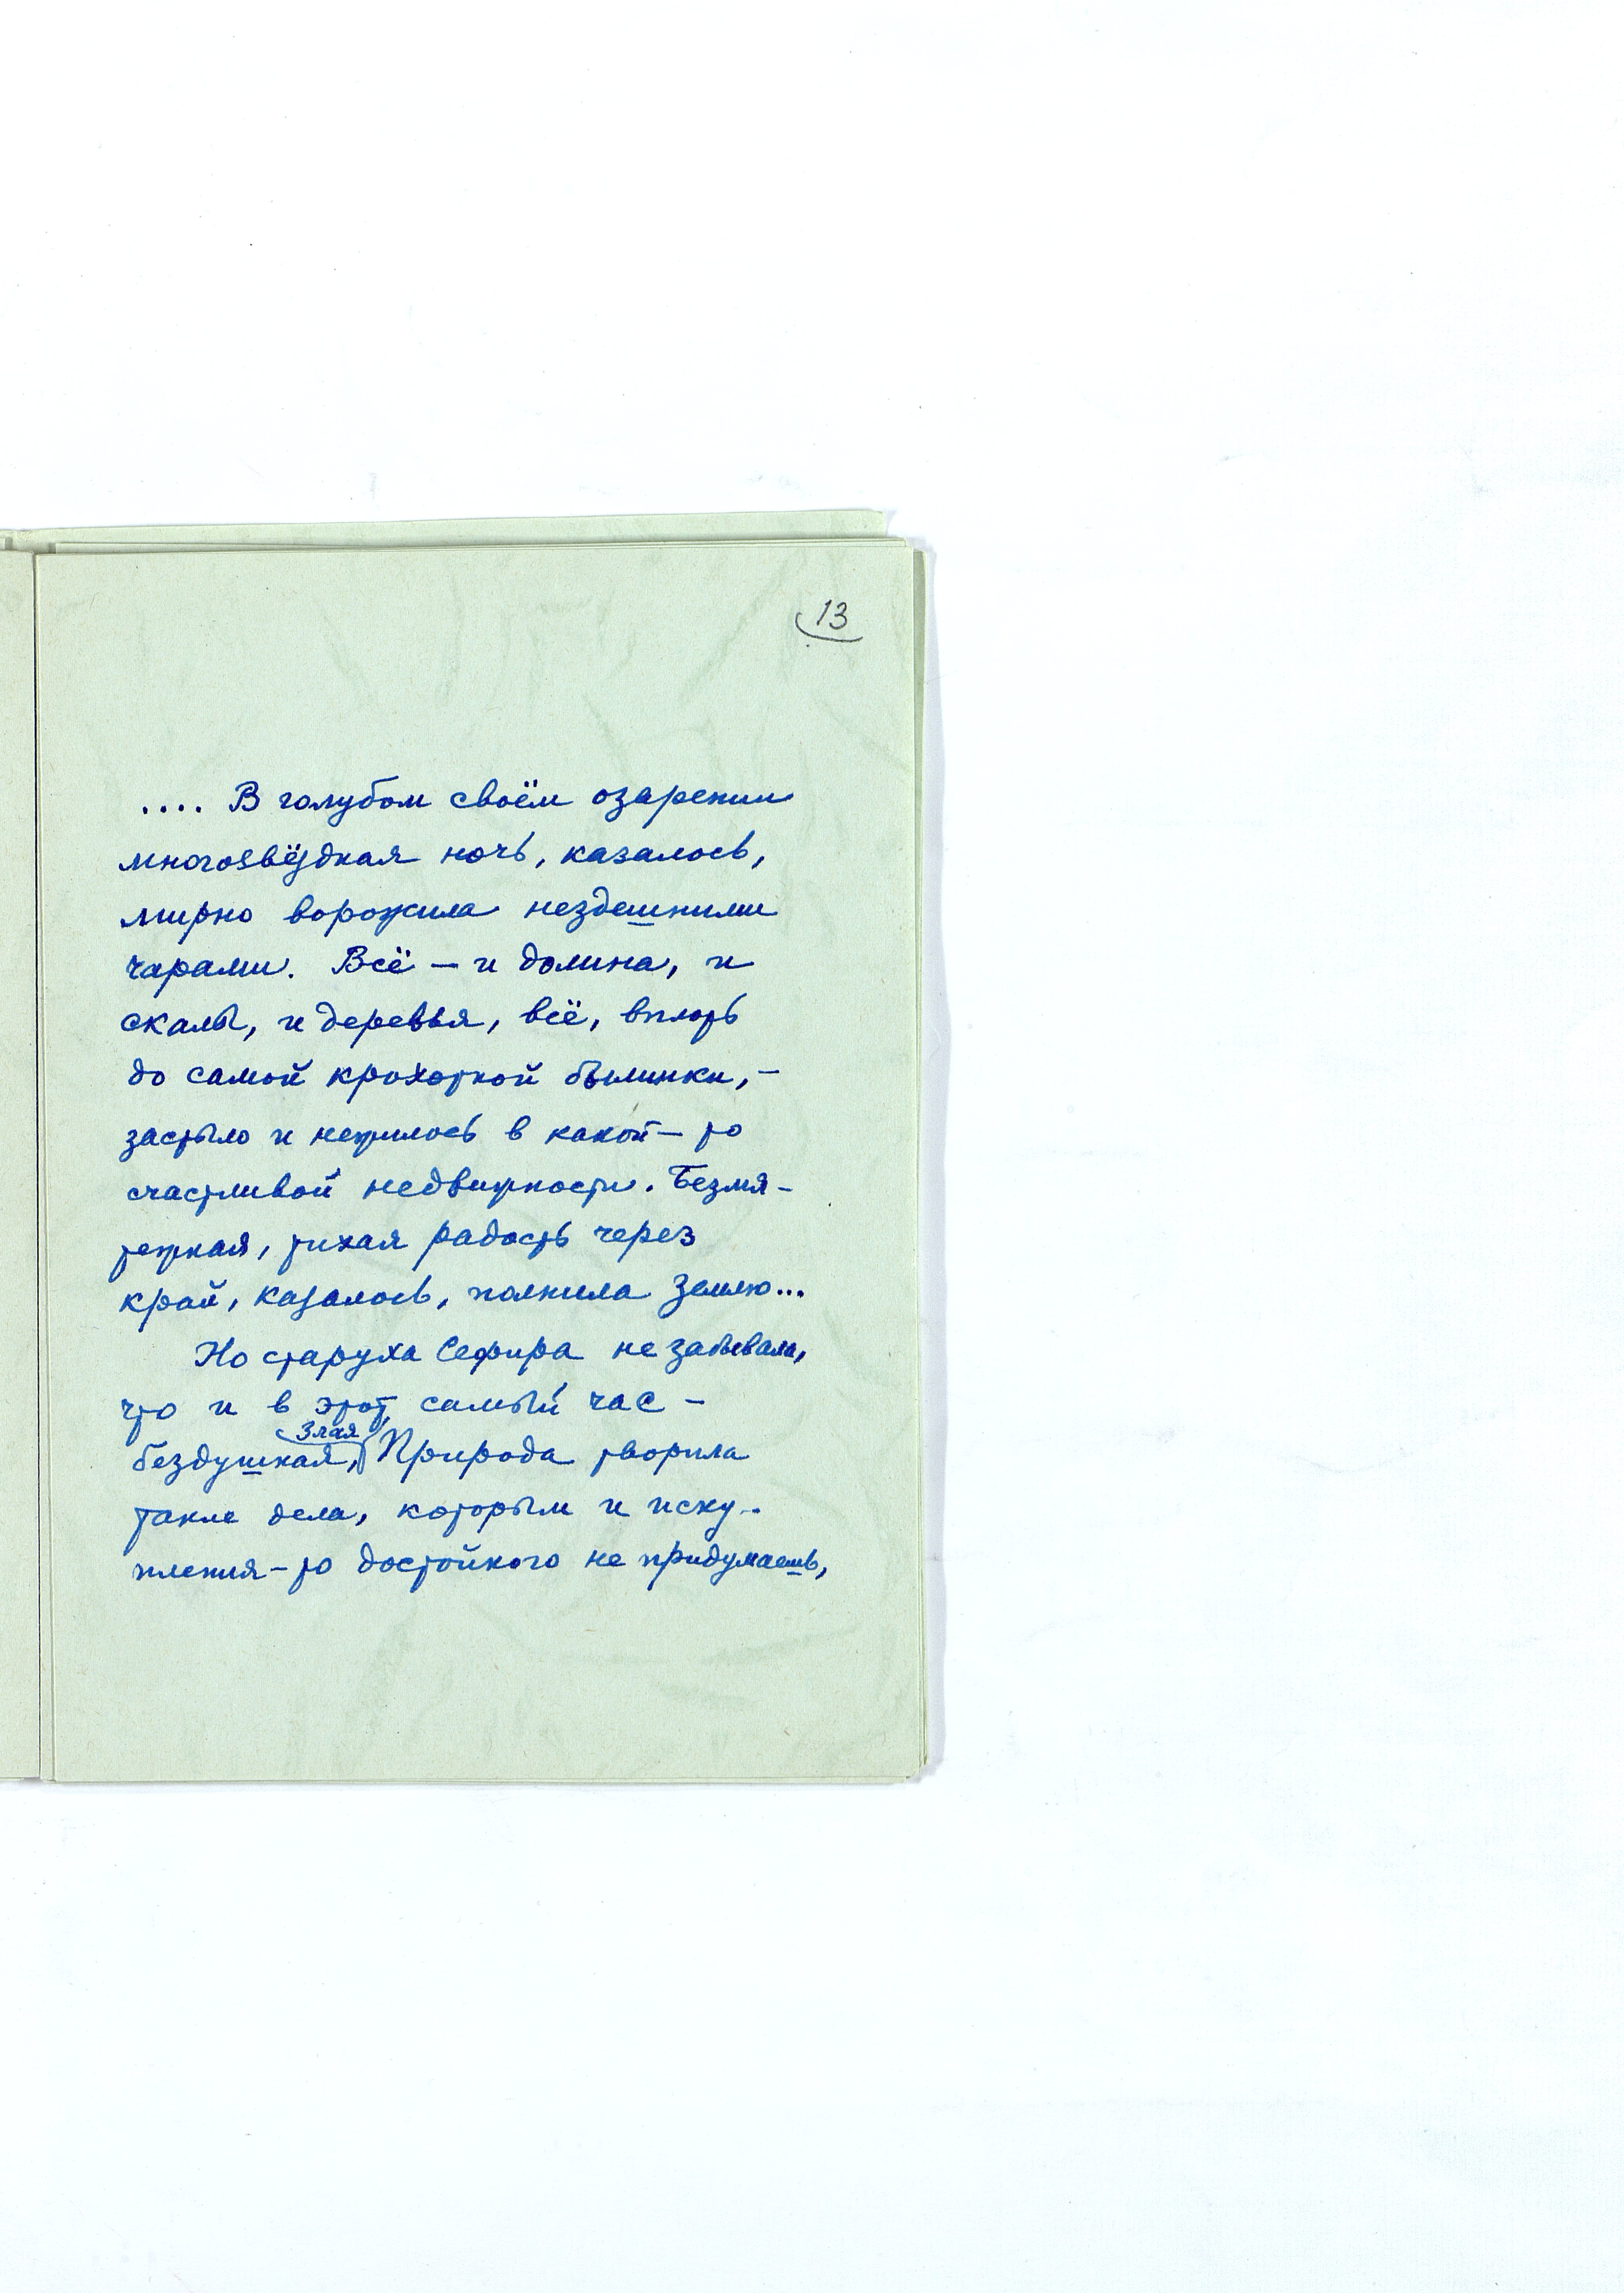 13
.... В голубом своём озарении
многозвёздная ночь, казалось,
мирно ворожила нездешними
чарами. Всё — и долина, и
скалы, и деревья, всё, вплоть
до самой крохотной былинки, –
застыло и нежилось в какой-то
счастливой недвижности. Безмя-
тежная, тихая радость через
край, казалось, полнила землю...
Но старуха Сефира не забывала,
что и в этот самый час –
злая
бездушная, Природа творила
такие дела, которым и иску-
пления-то достойного не придумаешь,